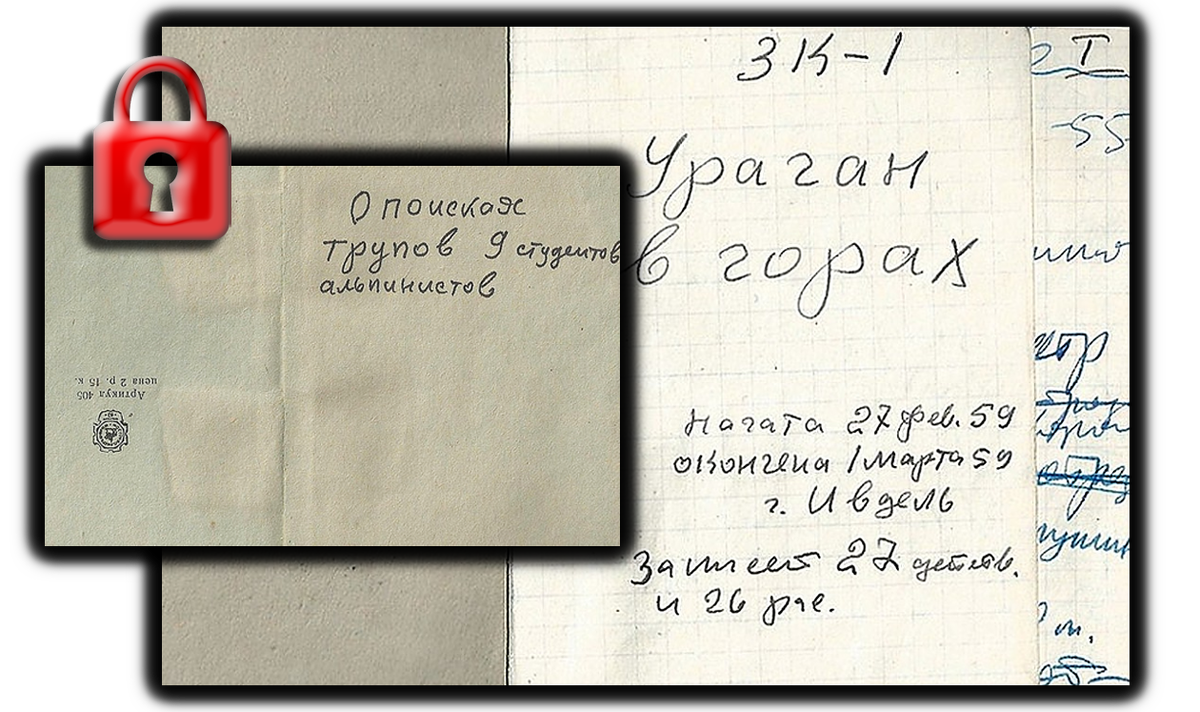 О поисках
трупов 9 студентов
альпинистов
Артикул 405
цена 2 р. 15 к.
ЗК-1
Ураган
в горах
начата 27 фев. 59
окончена 1 марта 59
г. Ивдель
27
и 26
I
-55